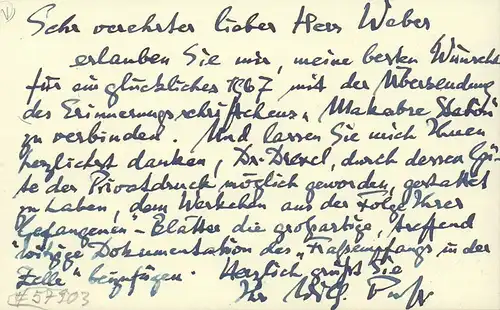 Sehr verehrter lieber Herr Weber
erlauben Sie mir, meine besten Wünsche
für ein glückliches 1967 mit der Übersendung
des Erinnerungsschriftchens „Makabre Station"
zu verbinden. Und lassen Sie mich Ihnen
herzlichst danken, Dr. Drexel, durch dessen Gü-
te der Privatdruck möglich geworden, gestattet
zu haben, dem Werkchen aus der Folge Ihrer
„Gefangenen"-Blätter die großartige, treffend
witzige Dokumentation des „Fraßempfangs in der
Zelle" beizufügen. Herzlich grüßt Sie
Ihr
#57903